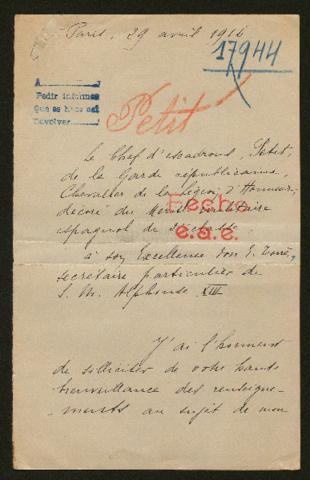 Paris, 29 avril 1916
17944
A
Pedir informes
Que se hace así
Devolver
Petit
Le Chef d'escadrons, Petit,
de la Garde républicaine,
Chevalier de la Légion d'Honneur,
décoré du Mérite militaire
espagnol de
Fecho
e.a.e.
à son Excellence don E. Torrès,
secrétaire particulier de
S. M. Alphonse XIII
J'ai l'honneur
de solliciter de votre haute
bienveillance des renseigne-
ments au sujet de mon